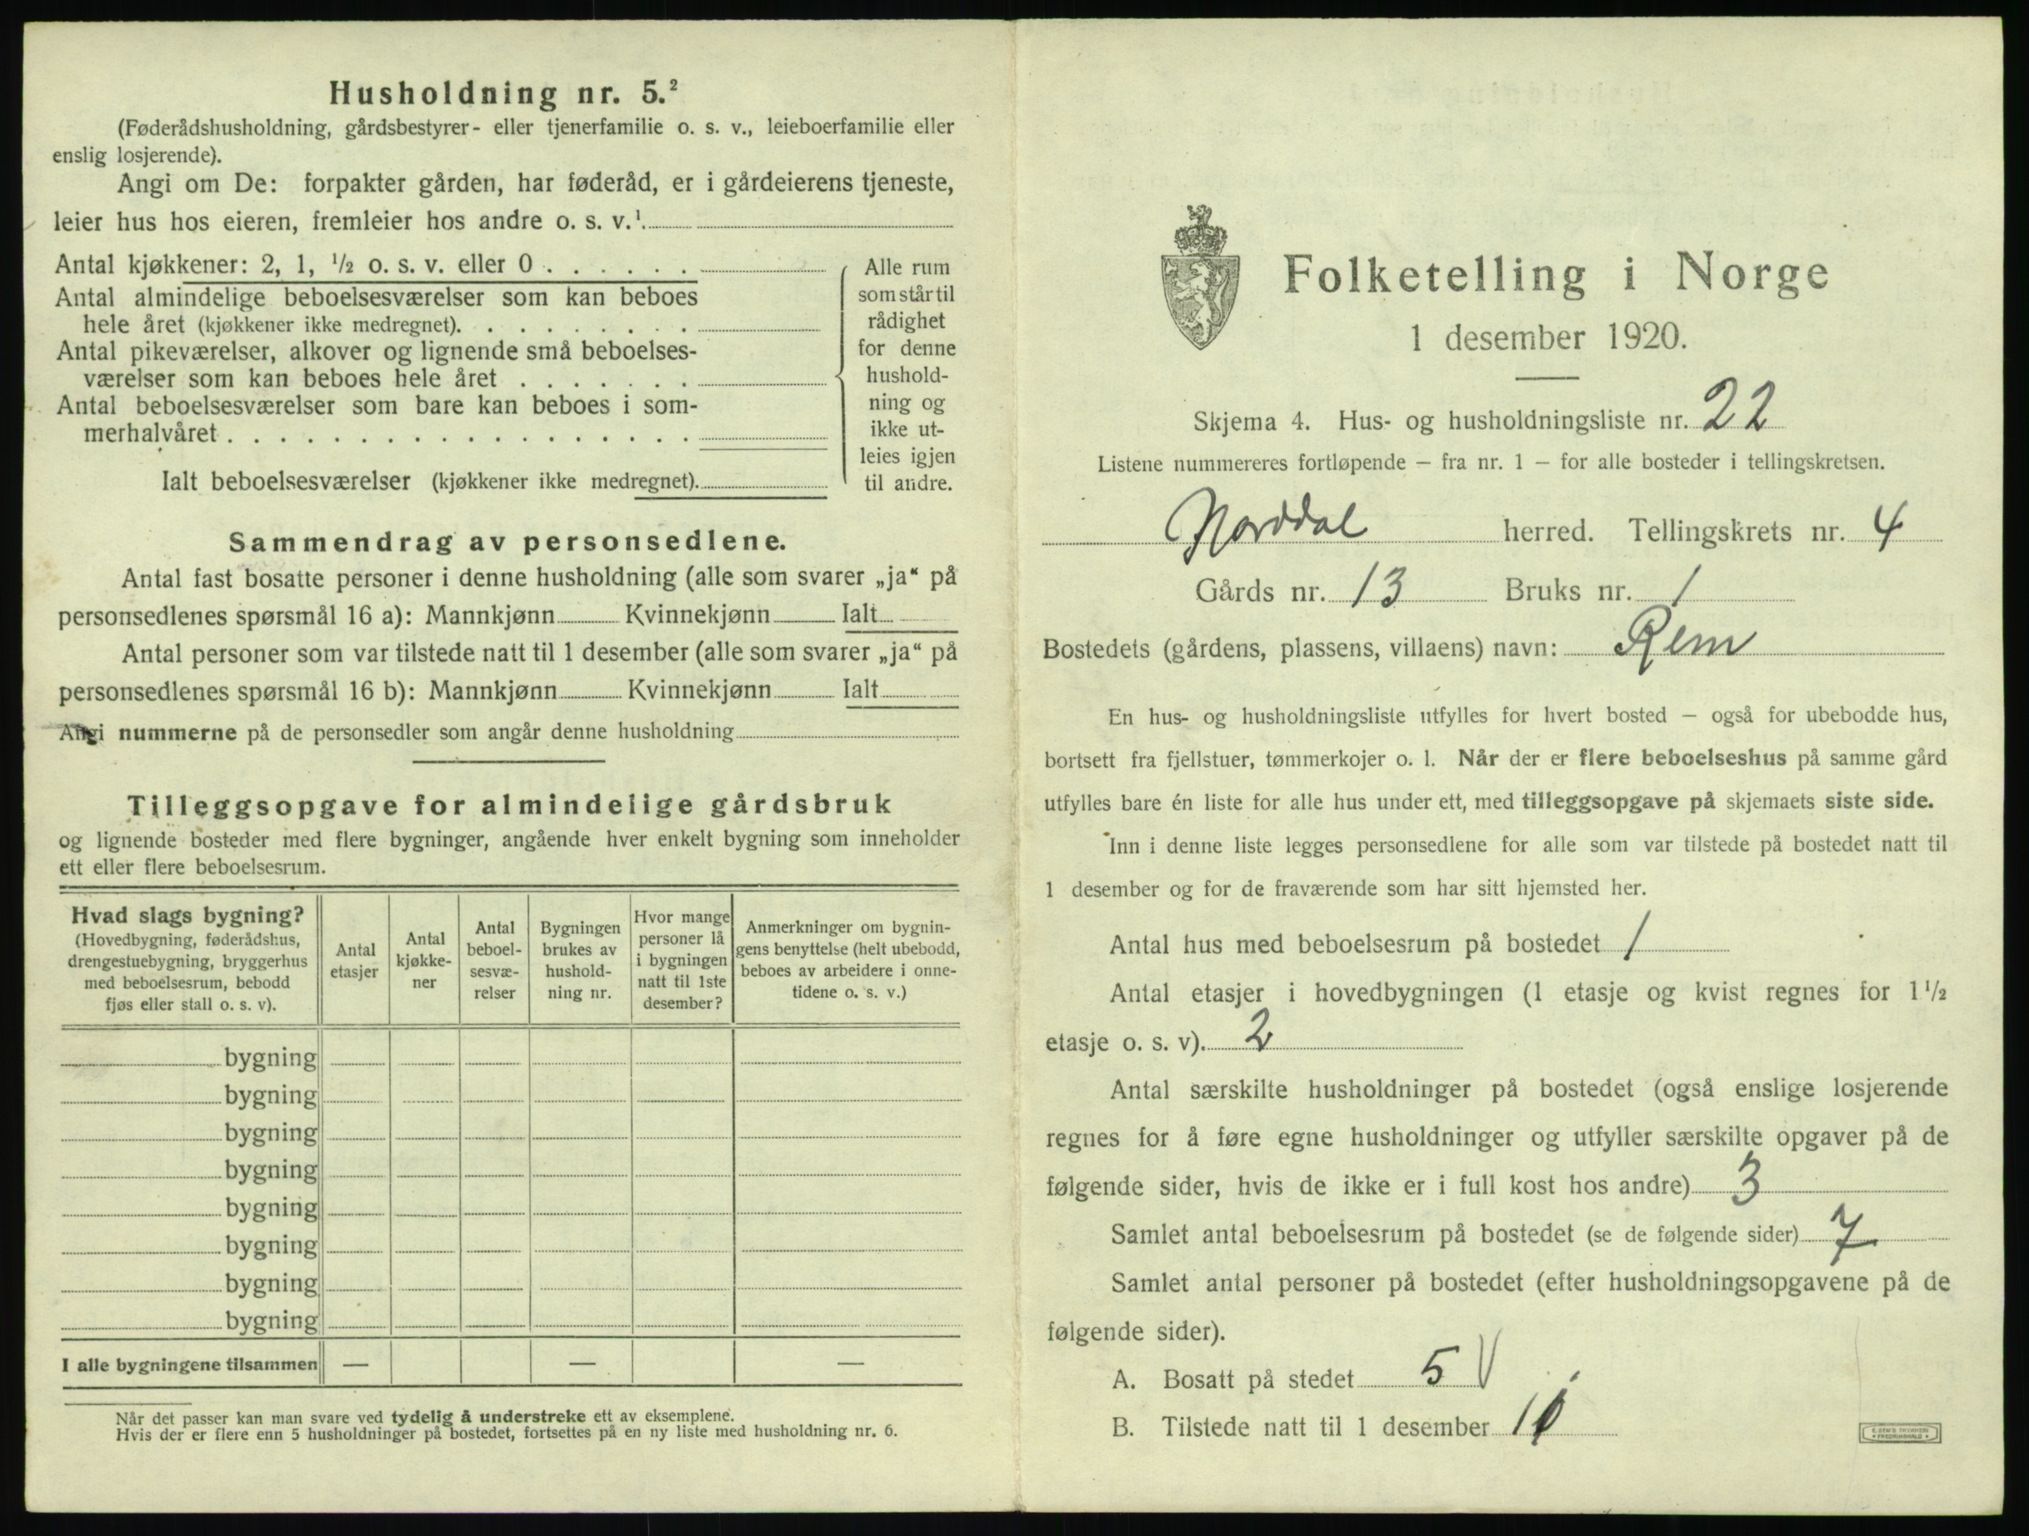 Husholdning nr. 5.²
(Føderådshusholdning, gårdsbestyrer- eller tjenerfamilie o. s. v., leieboerfamilie eller
enslig losjerende).
Angi om De: forpakter gården, har føderåd, er i gårdeierens tjeneste,
leier hus hos eieren, fremleier hos andre o. s. v.¹.
Antal kjøkkener: 2, 1, ½ o. s. v. eller 0 . . . . . .
Antal almindelige beboelsesværelser som kan beboes
hele året (kjøkkener ikke medregnet). . . . . . . . .
Antal pikeværelser, alkover og lignende små beboelses-
værelser som kan beboes hele året . . . . . . .
Antal beboelsesværelser som bare kan beboes i som-
merhalvåret . . . . . . . . . . . . . . . . . .
Ialt beboelsesværelser (kjøkkener ikke medregnet).
Alle rum
som står til
rådighet
for denne
hushold-
ning og
ikke ut-
leies igjen
til andre.
Sammendrag av personsedlene.
Antal fast bosatte personer i denne husholdning (alle som svarer „ja“ på
personsedlenes spørsmål 16 a): Mannkjønn Kvinnekjønn Ialt
Antal personer som var tilstede natt til 1 desember (alle som svarer „ja“ på
personsedlenes spørsmål 16 b): Mannkjønn Kvinnekjønn Ialt
Angi nummerne på de personsedler som angår denne husholdning
Tilleggsopgave for almindelige gårdsbruk
og lignende bosteder med flere bygninger, angående hver enkelt bygning som inneholder
ett eller flere beboelsesrum.
Hvad slags bygning?
(Hovedbygning, føderådshus,
drengestuebygning, bryggerhus
med beboelsesrum, bebodd
fjøs eller stall o. s. v).
Antal
etasjer
Antal
kjøkke-
ner
Antal
beboel-
sesvæ-
relser
Bygningen
brukes av
hushold-
ning nr.
Hvor mange
personer lå
i bygningen
natt til 1ste
desember?
Anmerkninger om bygnin-
gens benyttelse (helt ubebodd,
beboes av arbeidere i onne-
tidene o. s. v.)
bygning
bygning
bygning
bygning
bygning
bygning
bygning
bygning
I alle bygningene tilsammen — — —
Når det passer kan man svare ved tydelig å understreke ett av eksemplene.
Hvis der er flere enn 5 husholdninger på bostedet, fortsettes på en ny liste med husholdning nr. 6.
Folketelling i Norge
1 desember 1920.
Skjema 4. Hus- og husholdningsliste nr. 22
Listene nummereres fortløpende — fra nr. 1 — for alle bosteder i tellingskretsen.
Norddal herred. Tellingskrets nr. 4
Gårds nr. 13 Bruks nr. 1
Bostedets (gårdens, plassens, villaens) navn: Rem
En hus- og husholdningsliste utfylles for hvert bosted — også for ubebodde hus,
bortsett fra fjellstuer, tømmerkojer o. l. Når der er flere beboelseshus på samme gård
utfylles bare én liste for alle hus under ett, med tilleggsopgave på skjemaets siste side.
Inn i denne liste legges personsedlene for alle som var tilstede på bostedet natt til
1 desember og for de fraværende som har sitt hjemsted her.
Antal hus med beboelsesrum på bostedet 1
Antal etasjer i hovedbygningen (1 etasje og kvist regnes for 1½
etasje o. s. v). 2
Antal særskilte husholdninger på bostedet (også enslige losjerende
regnes for å føre egne husholdninger og utfyller særskilte opgaver på de
følgende sider, hvis de ikke er i full kost hos andre) 3
Samlet antal beboelsesrum på bostedet (se de følgende sider) 7
Samlet antal personer på bostedet (efter husholdningsopgavene på de
følgende sider).
A. Bosatt på stedet 5
B. Tilstede natt til 1 desember